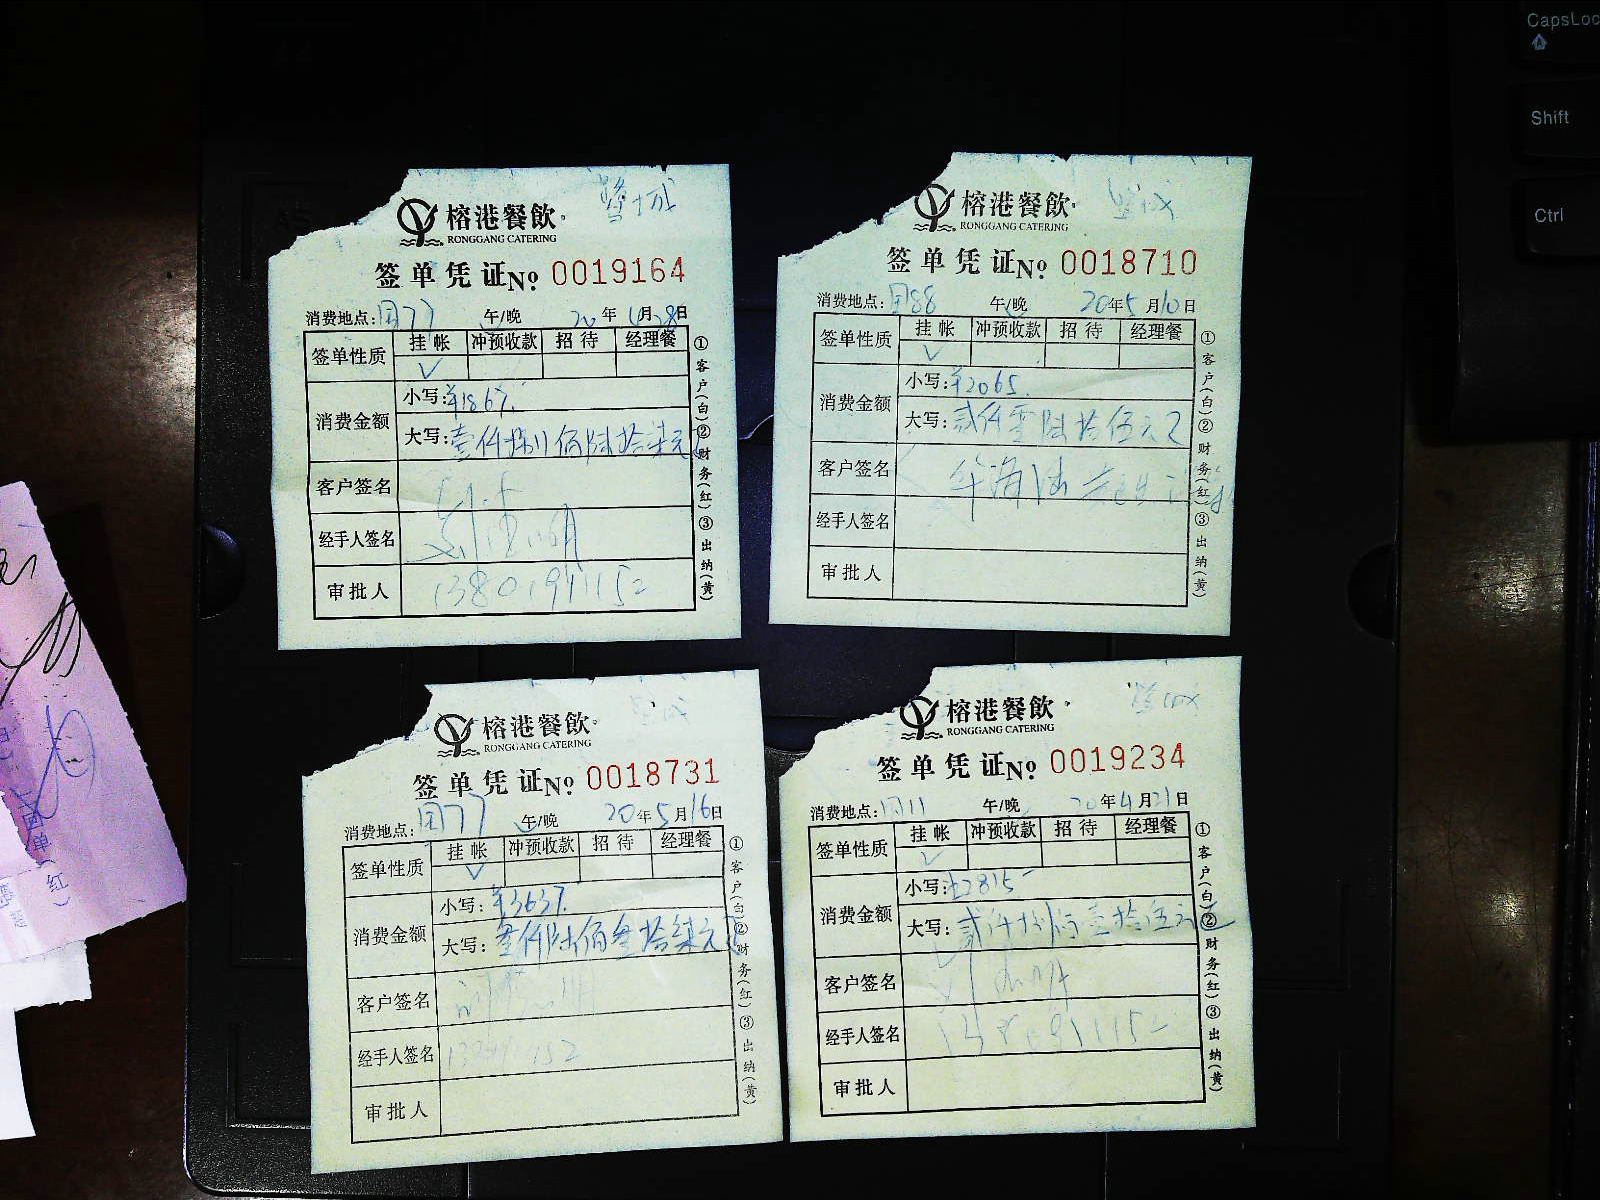 榕港餐飲
RONGGANG CATERING
签单凭证 № 0019164
消费地点: 团77 午/晚 20 年 4月28日
签单性质 挂帐 冲预收款 招待 经理餐
✓
消费金额 小写:¥1867.
大写:壹仟捌佰陆拾柒元
客户签名
经手人签名
审批人 13801911152
①客户(白)②财务(红)③出纳(黄)
榕港餐飲
RONGGANG CATERING
签单凭证 № 0018710
消费地点: 团88 午/晚 20年5月10日
签单性质 挂帐 冲预收款 招待 经理餐
✓
消费金额 小写:¥2065.
大写:贰仟零陆拾伍元
客户签名
经手人签名
审批人
①客户(白)②财务(红)③出纳(黄)
榕港餐飲
RONGGANG CATERING
签单凭证 № 0018731
消费地点: 团77 午/晚 20年5月16日
签单性质 挂帐 冲预收款 招待 经理餐
✓
消费金额 小写:¥3637.
大写:叁仟陆佰叁拾柒元
客户签名
经手人签名
审批人
①客户(白)②财务(红)③出纳(黄)
榕港餐飲
RONGGANG CATERING
签单凭证 № 0019234
消费地点: 团11 午/晚 20年4月21日
签单性质 挂帐 冲预收款 招待 经理餐
✓
消费金额 小写:¥2815
大写:贰仟捌佰壹拾伍元
客户签名
经手人签名
审批人
①客户(白)②财务(红)③出纳(黄)
CapsLoc
Shift
Ctrl
单(红)